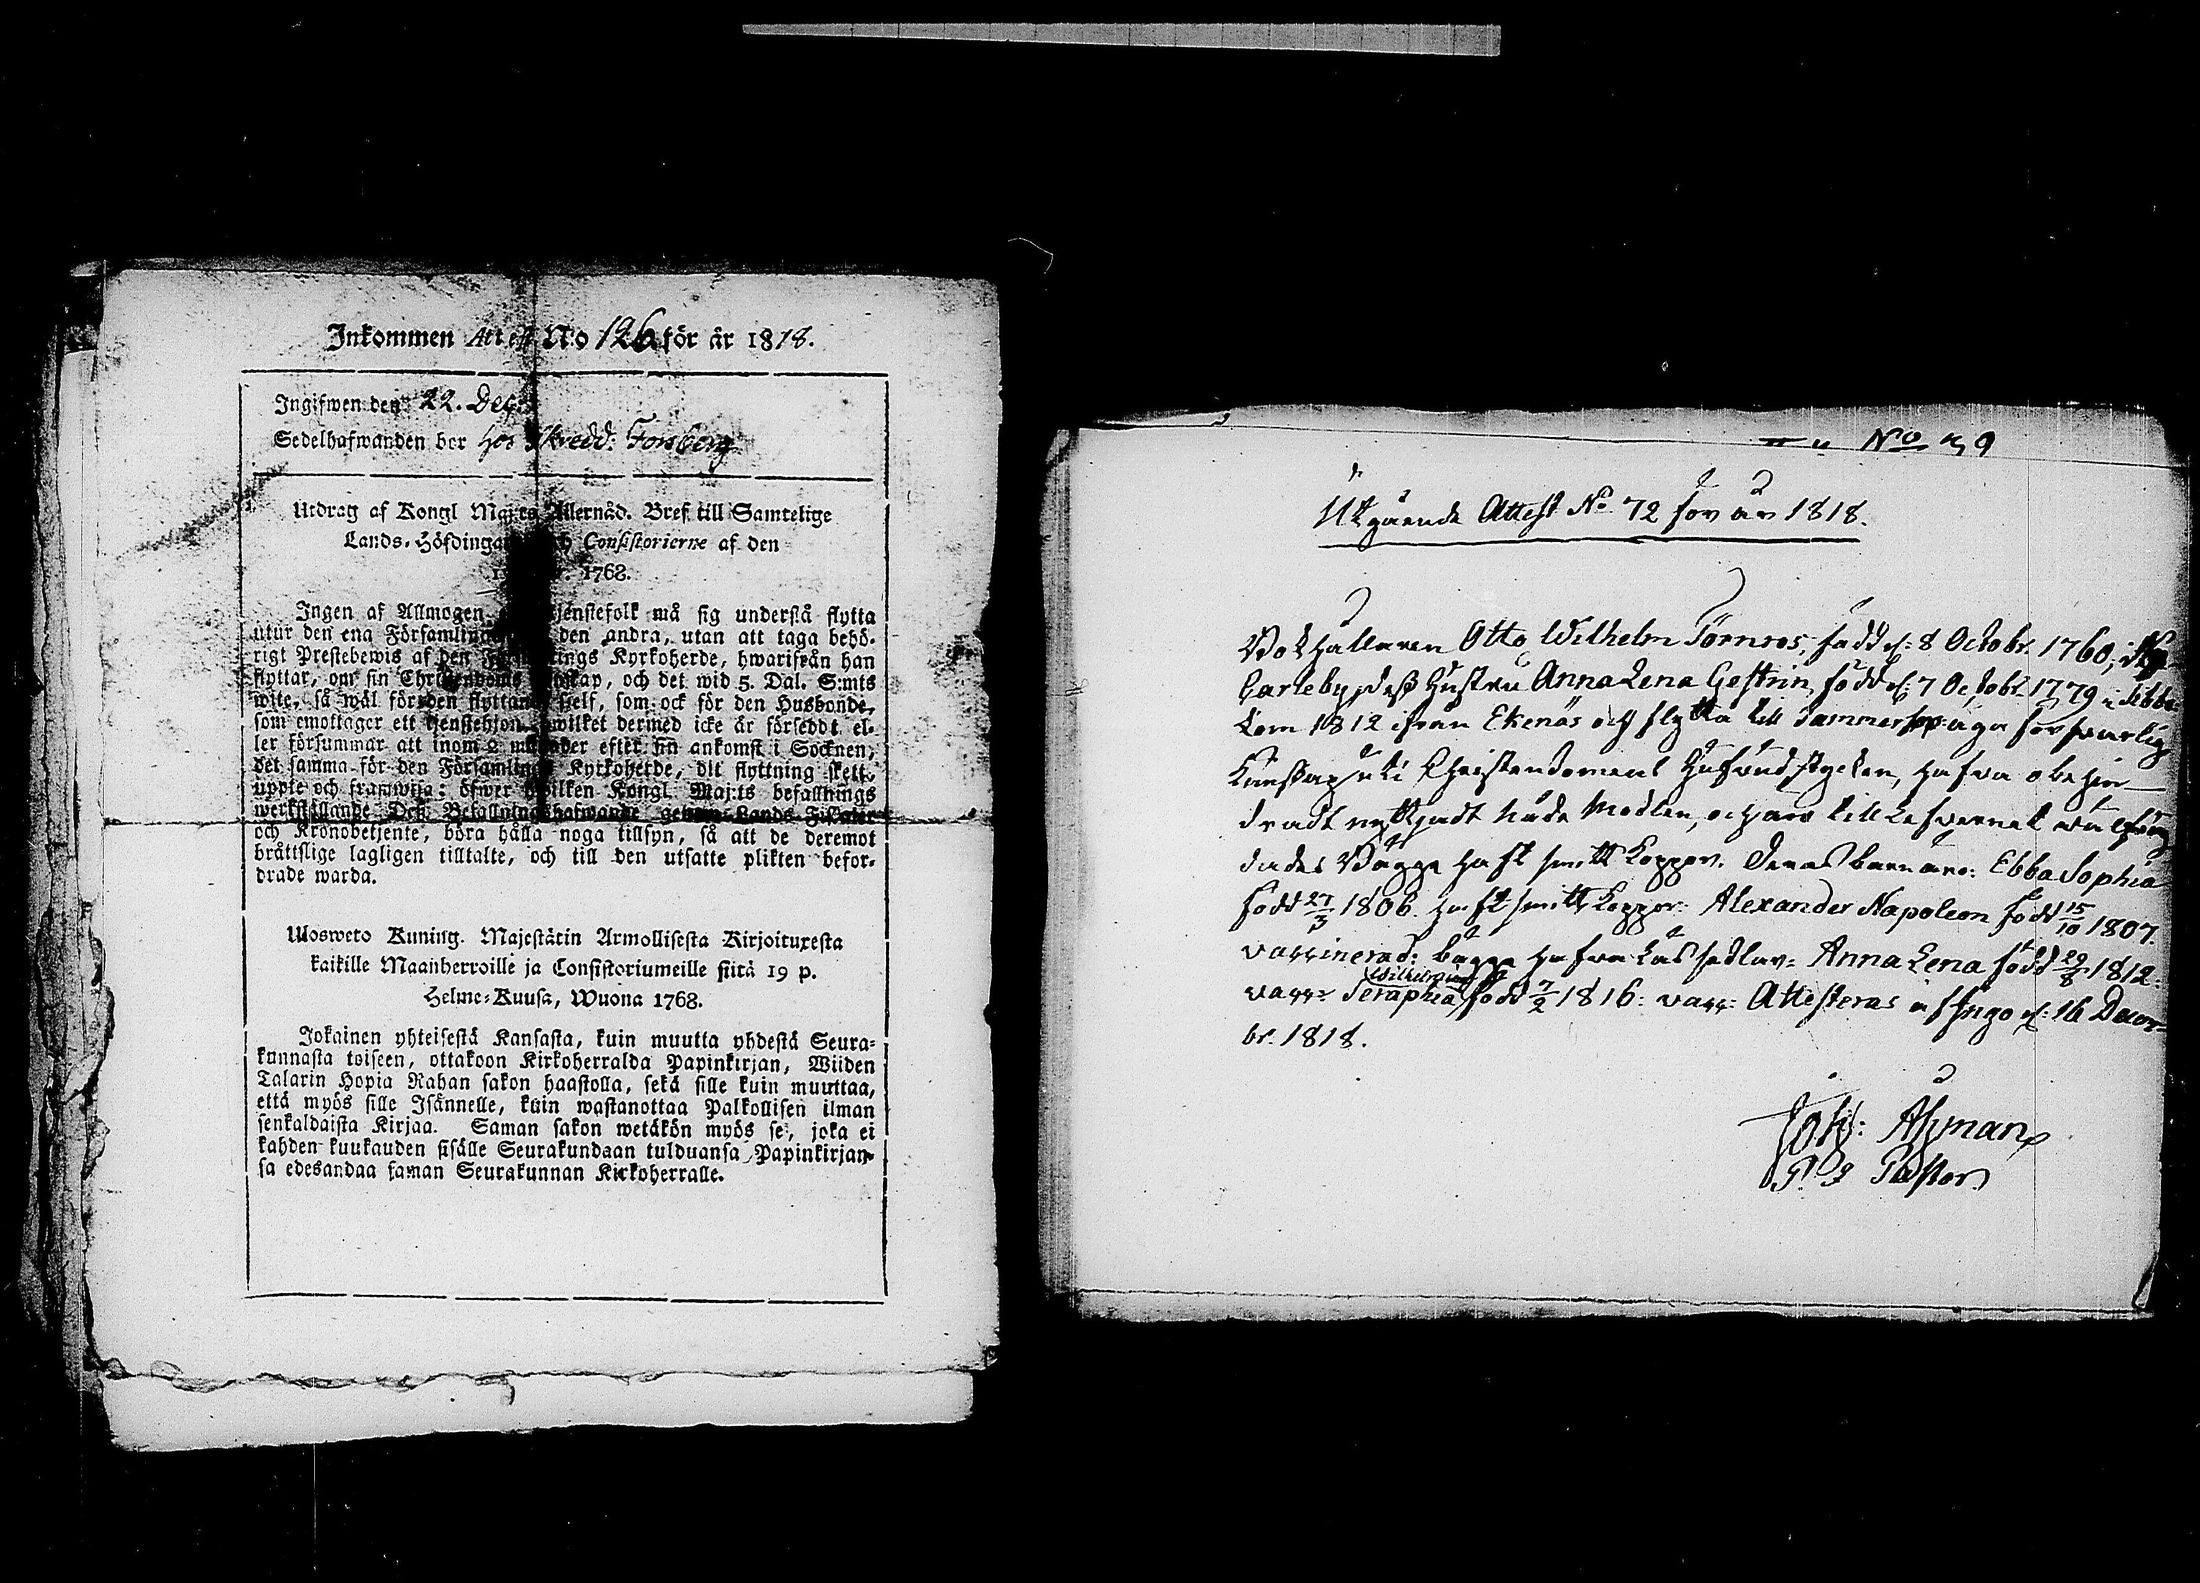 Inkommen Attest N:o 126 för år 1818.
Ingifwen den 22. Dec:
Sedelhafwanden bor hos Skredd: Forsberg
Utdrag af Kongl Maj:ts Allernåd. Bref till Samtelige
Lands-Höfdingar och Consistorierne af den
1768.
Ingen af Allmogen tjenstefolk må sig understå flytta
utur den ena Församlingen den andra, utan att taga behö-
rigt Prestebewis af den Församlings Kyrkoherde, hwarifrån han
flyttar, om sin Christendoms kunskap, och det wid 5. Dal. S:mts
wite, så wäl för den flyttande sjelf, som ock för den Husbonde,
som emottager ett tjenstehjon, hwilket dermed icke är försedt el-
ler försummar att inom 2 månader efter sin ankomst i Socknen,
det samma för den Församlings Kyrkoherde, dit flyttning skett,
uppte och framwisa: öfwer hwilken Kongl. Maj:ts befallnings
werkställande Dess Befallningshafwande genom Lands-Fiskaler
och Kronobetjente, böra hålla noga tillsyn, så att de deremot
bråttslige lagligen tilltalte, och till den utsatte plikten befor-
drade warda.
Ulosweto Kuning. Majestätin Armollisesta Kirjoituxesta
kaikille Maanherroille ja Consistoriumeille siitä 19 p.
Helme-Kuusa, Wuona 1768.
Jokainen yhteisestä Kansasta, kuin muutta yhdestä Seura-
kunnasta toiseen, ottakoon Kirkoherralda Papinkirjan, Wiiden
Talarin Hopia Rahan sakon haastolla, sekä sille kuin muuttaa,
että myös sille Isännelle, kuin wastanottaa Palkollisen ilman
senkaldaista Kirjaa. Saman sakon wetäkön myös se, joka ei
kahden kuukauden sisälle Seurakundaan tulduansa Papinkirjan-
sa edesandaa saman Seurakunnan Kirkoherralle.
No 39
Utgående Attest No 72 för år 1818.
Bokhållaren Otto Wilhelm Törnros, född d: 8 Octobr. 1760, i Ny
Carleby, dess Hustru Anna Lena Gestrin, född d: 7 Octobr 1779 i Sibbo
kom 1812 ifrån Ekenäs och flytta till Tammerfors äga försvarlig
Kunskap uti Christendomens Hufvudstycken, hafva obehin-
dradt nyttjadt Nåde Medlen, och äro till Lefvernet välfräg
dade. Bägge haft smittkoppor. Deras barn äro: Ebba Sophia
född 27/3 1806. haft smittkoppor: Alexander Napoleon född 15/10 1807.
vaccinerad: bägge hafva Läs sedlar: Anna Lena född 29/8 1812:
vacc: Seraphia Wilhelmina född 7/2 1816: vacc: Attesteras af Ingo d: 16 Decem
br. 1818.
Joh: Ahman
Pastor.